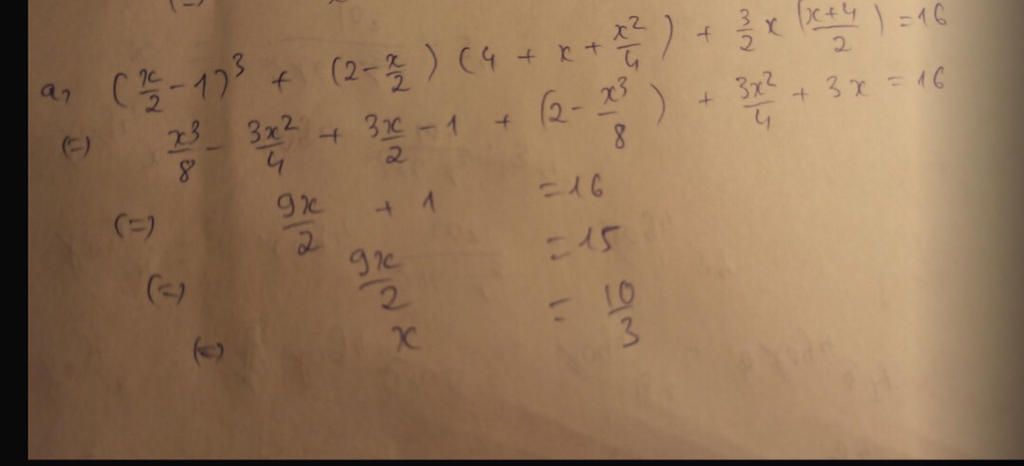 a, (x/2 - 1)³ + (2 - x/2) (4 + x + x²/4) + 3/2 x (x+4/2) = 16
(=) x³/8 - 3x²/4 + 3x/2 - 1 + (2 - x³/8) + 3x²/4 + 3x = 16
(=) 9x/2 + 1 = 16
(=) 9x/2 = 15
(=) x = 10/3